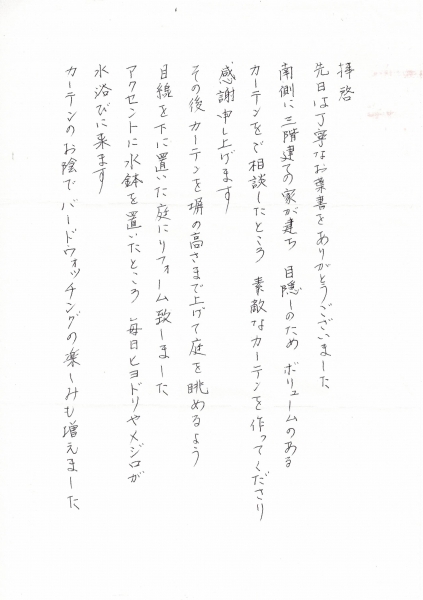 拝啓
先日は丁寧なお葉書をありがとうございました
南側に三階建ての家が建ち 目隠しのため ボリュームのある
カーテンをご相談したところ 素敵なカーテンを作ってくださり
感謝申し上げます
その後カーテンを塀の高さまで上げて庭を眺めるよう
目線を下に置いた庭にリフォーム致しました
アクセントに水鉢を置いたところ 毎日ヒヨドリやメジロが
水浴びに来ます
カーテンのお陰でバードウォッチングの楽しみも増えました